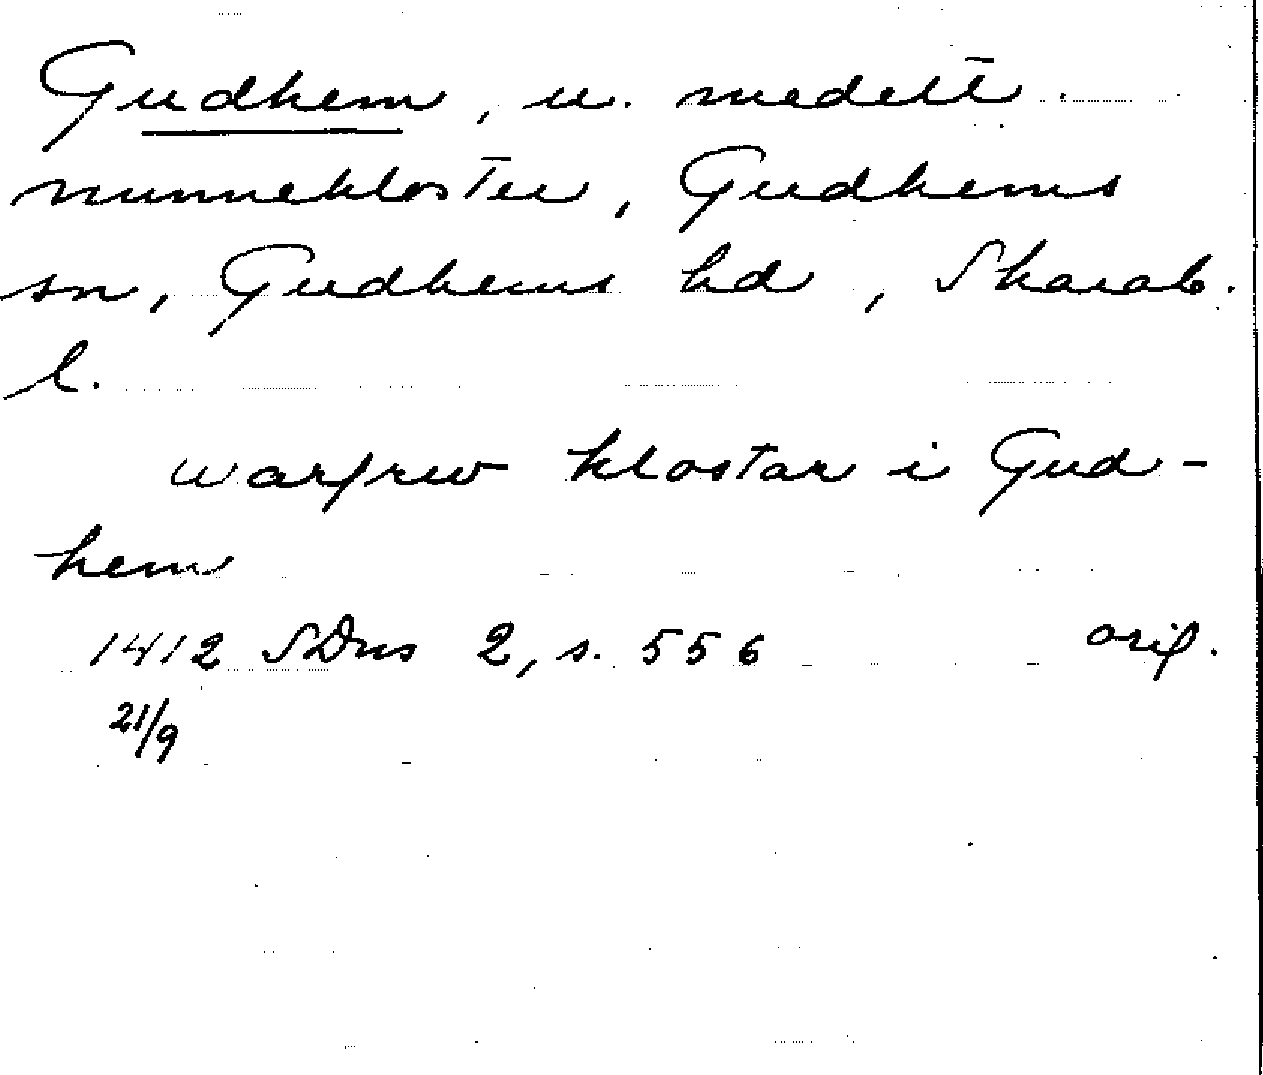 Gudhem, n. medelt.
nunnekloster, Gudhems
sn, Gudhems hd, Skarab.
l.
warfrw klostar i Gud-
hem
1412 SDns 2, s. 556 orig.
21/9